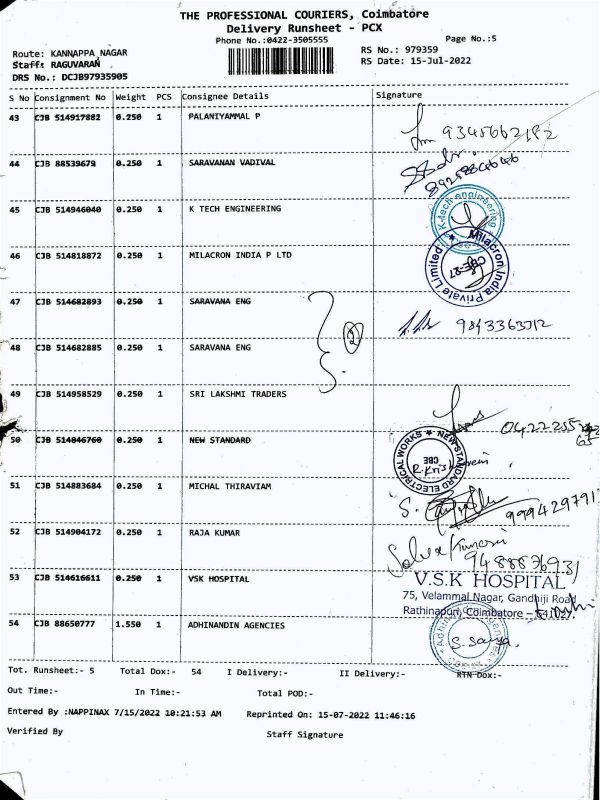 THE PROFESSIONAL COURIERS, Coimbatore
Delivery Runsheet - PCX
Phone No.:0422-3505555
Page No.:5
Route: KANNAPPA NAGAR
RS No.: 979359
Staff: RAGUVARAN
RS Date: 15-Jul-2022
DRS No.: DCJB97935905
S No Consignment No Weight PCS Consignee Details Signature
43 CJB 514917882 0.250 1 PALANIYAMMAL P
9345662182
44 CJB 88539679 0.250 1 SARAVANAN VADIVAL
45 CJB 514946040 0.250 1 K TECH ENGINEERING
K-tech engineering
46 CJB 514818872 0.250 1 MILACRON INDIA P LTD
Milacron India Private Limited
CBE-27
47 CJB 514682893 0.250 1 SARAVANA ENG
2
48 CJB 514682885 0.250 1 SARAVANA ENG
49 CJB 514958529 0.250 1 SRI LAKSHMI TRADERS
50 CJB 514846760 0.250 1 NEW STANDARD
NEW STANDARD ELECTRICAL WORKS
CBE
51 CJB 514883684 0.250 1 MICHAL THIRAVIAM
52 CJB 514904172 0.250 1 RAJA KUMAR
9488876931
53 CJB 514616611 0.250 1 VSK HOSPITAL
V.S.K HOSPITAL
75, Velammal Nagar, Gandhiji Road
Rathinapuri, Coimbatore -
54 CJB 88650777 1.550 1 ADHINANDIN AGENCIES
S. Sarya.
Tot. Runsheet:- 5 Total Dox:- 54 I Delivery:- II Delivery:- RTN Dox:-
Out Time:- In Time:- Total POD:-
Entered By :NAPPINAX 7/15/2022 10:21:53 AM Reprinted On: 15-07-2022 11:46:16
Verified By Staff Signature